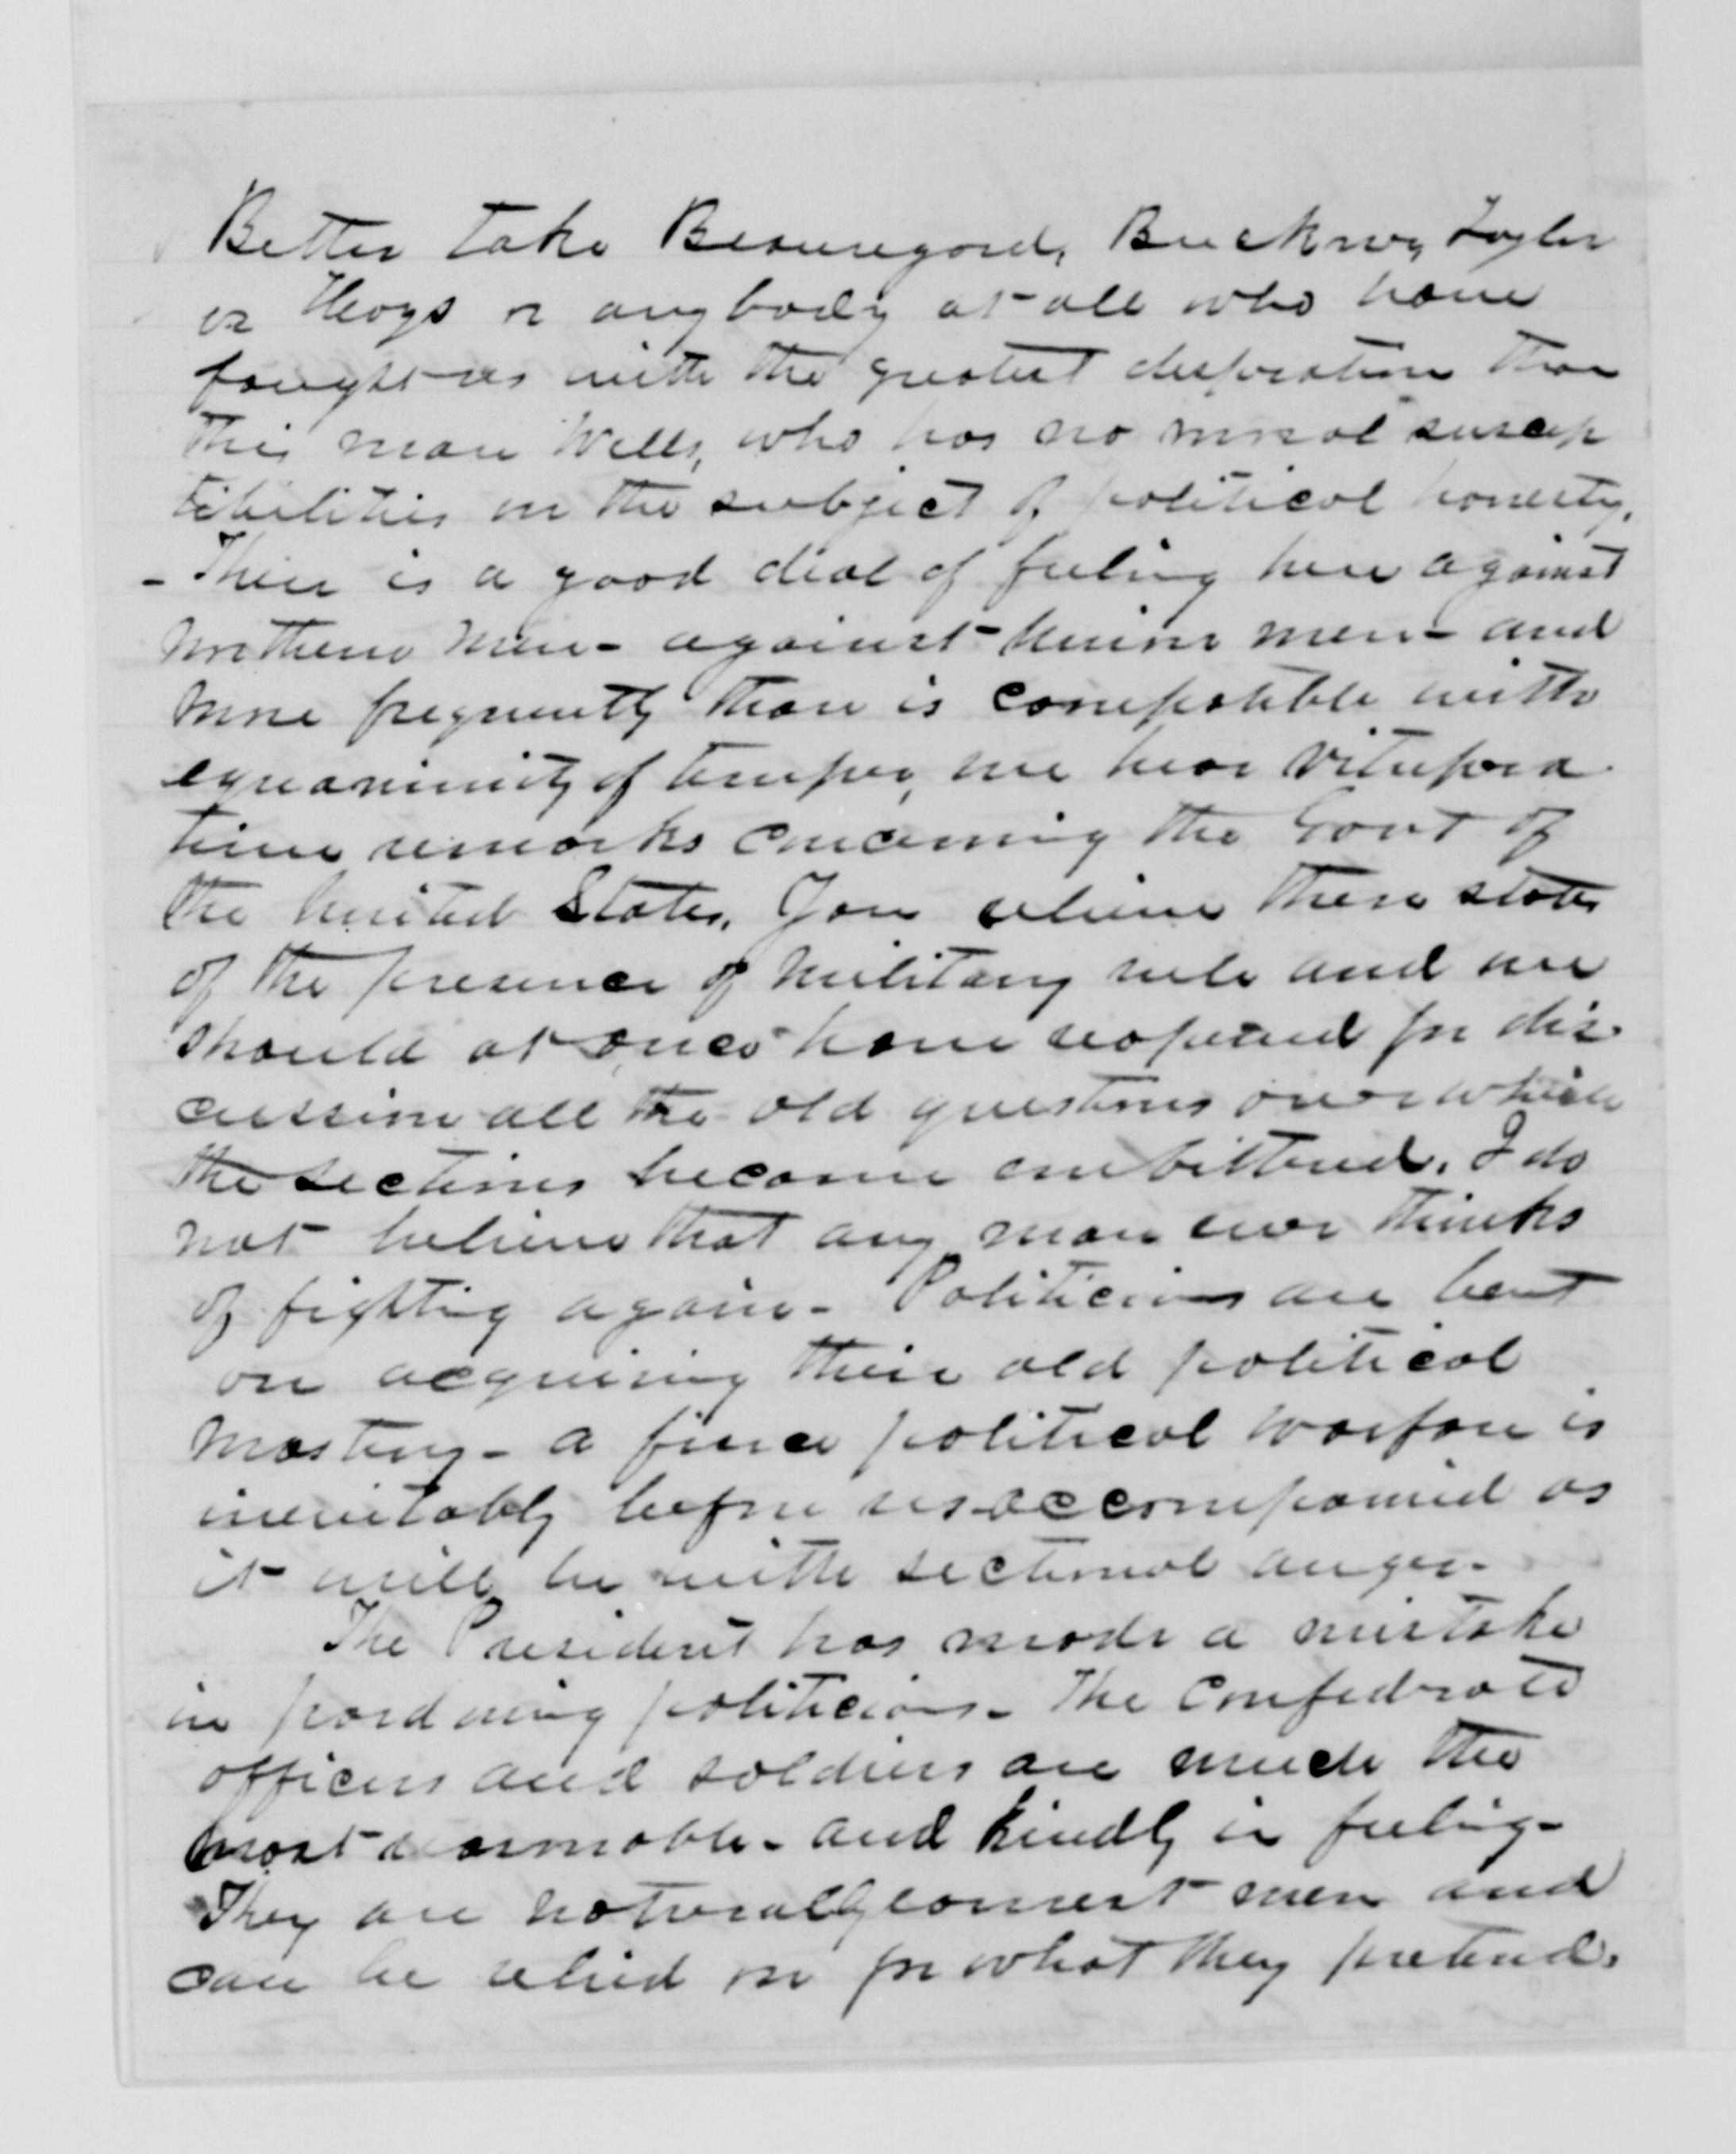 Better take Beauregard, Buckner, Taylor
or Hays or anybody at all who have
fought us with the greatest desperation than
this man Wells, who has no moral suscep
tibilities on the subject of political honesty.
- There is a good deal of feeling here against
Northern men - against Union men - and
more frequently than is compatible with
equanimity of temper, we hear vitupera-
tive remarks concerning the Govt of
the United States. You relieve these states
of the presence of military rule and we
should at once have reopened for dis-
cussion all the old questions over which
the sections became embittered. I do
not believe that any man ever thinks
of fighting again - Politicians are bent
on acquiring their old political
mastery - a fierce political warfare is
inevitably before us accompanied as
it will be with sectional anger -
The President has made a mistake
in pardning politicians - The Confederate
officers and soldiers are much the
most reasonable - and kindly in feeling -
They are naturally earnest men and
can be relied on for what they pretend.